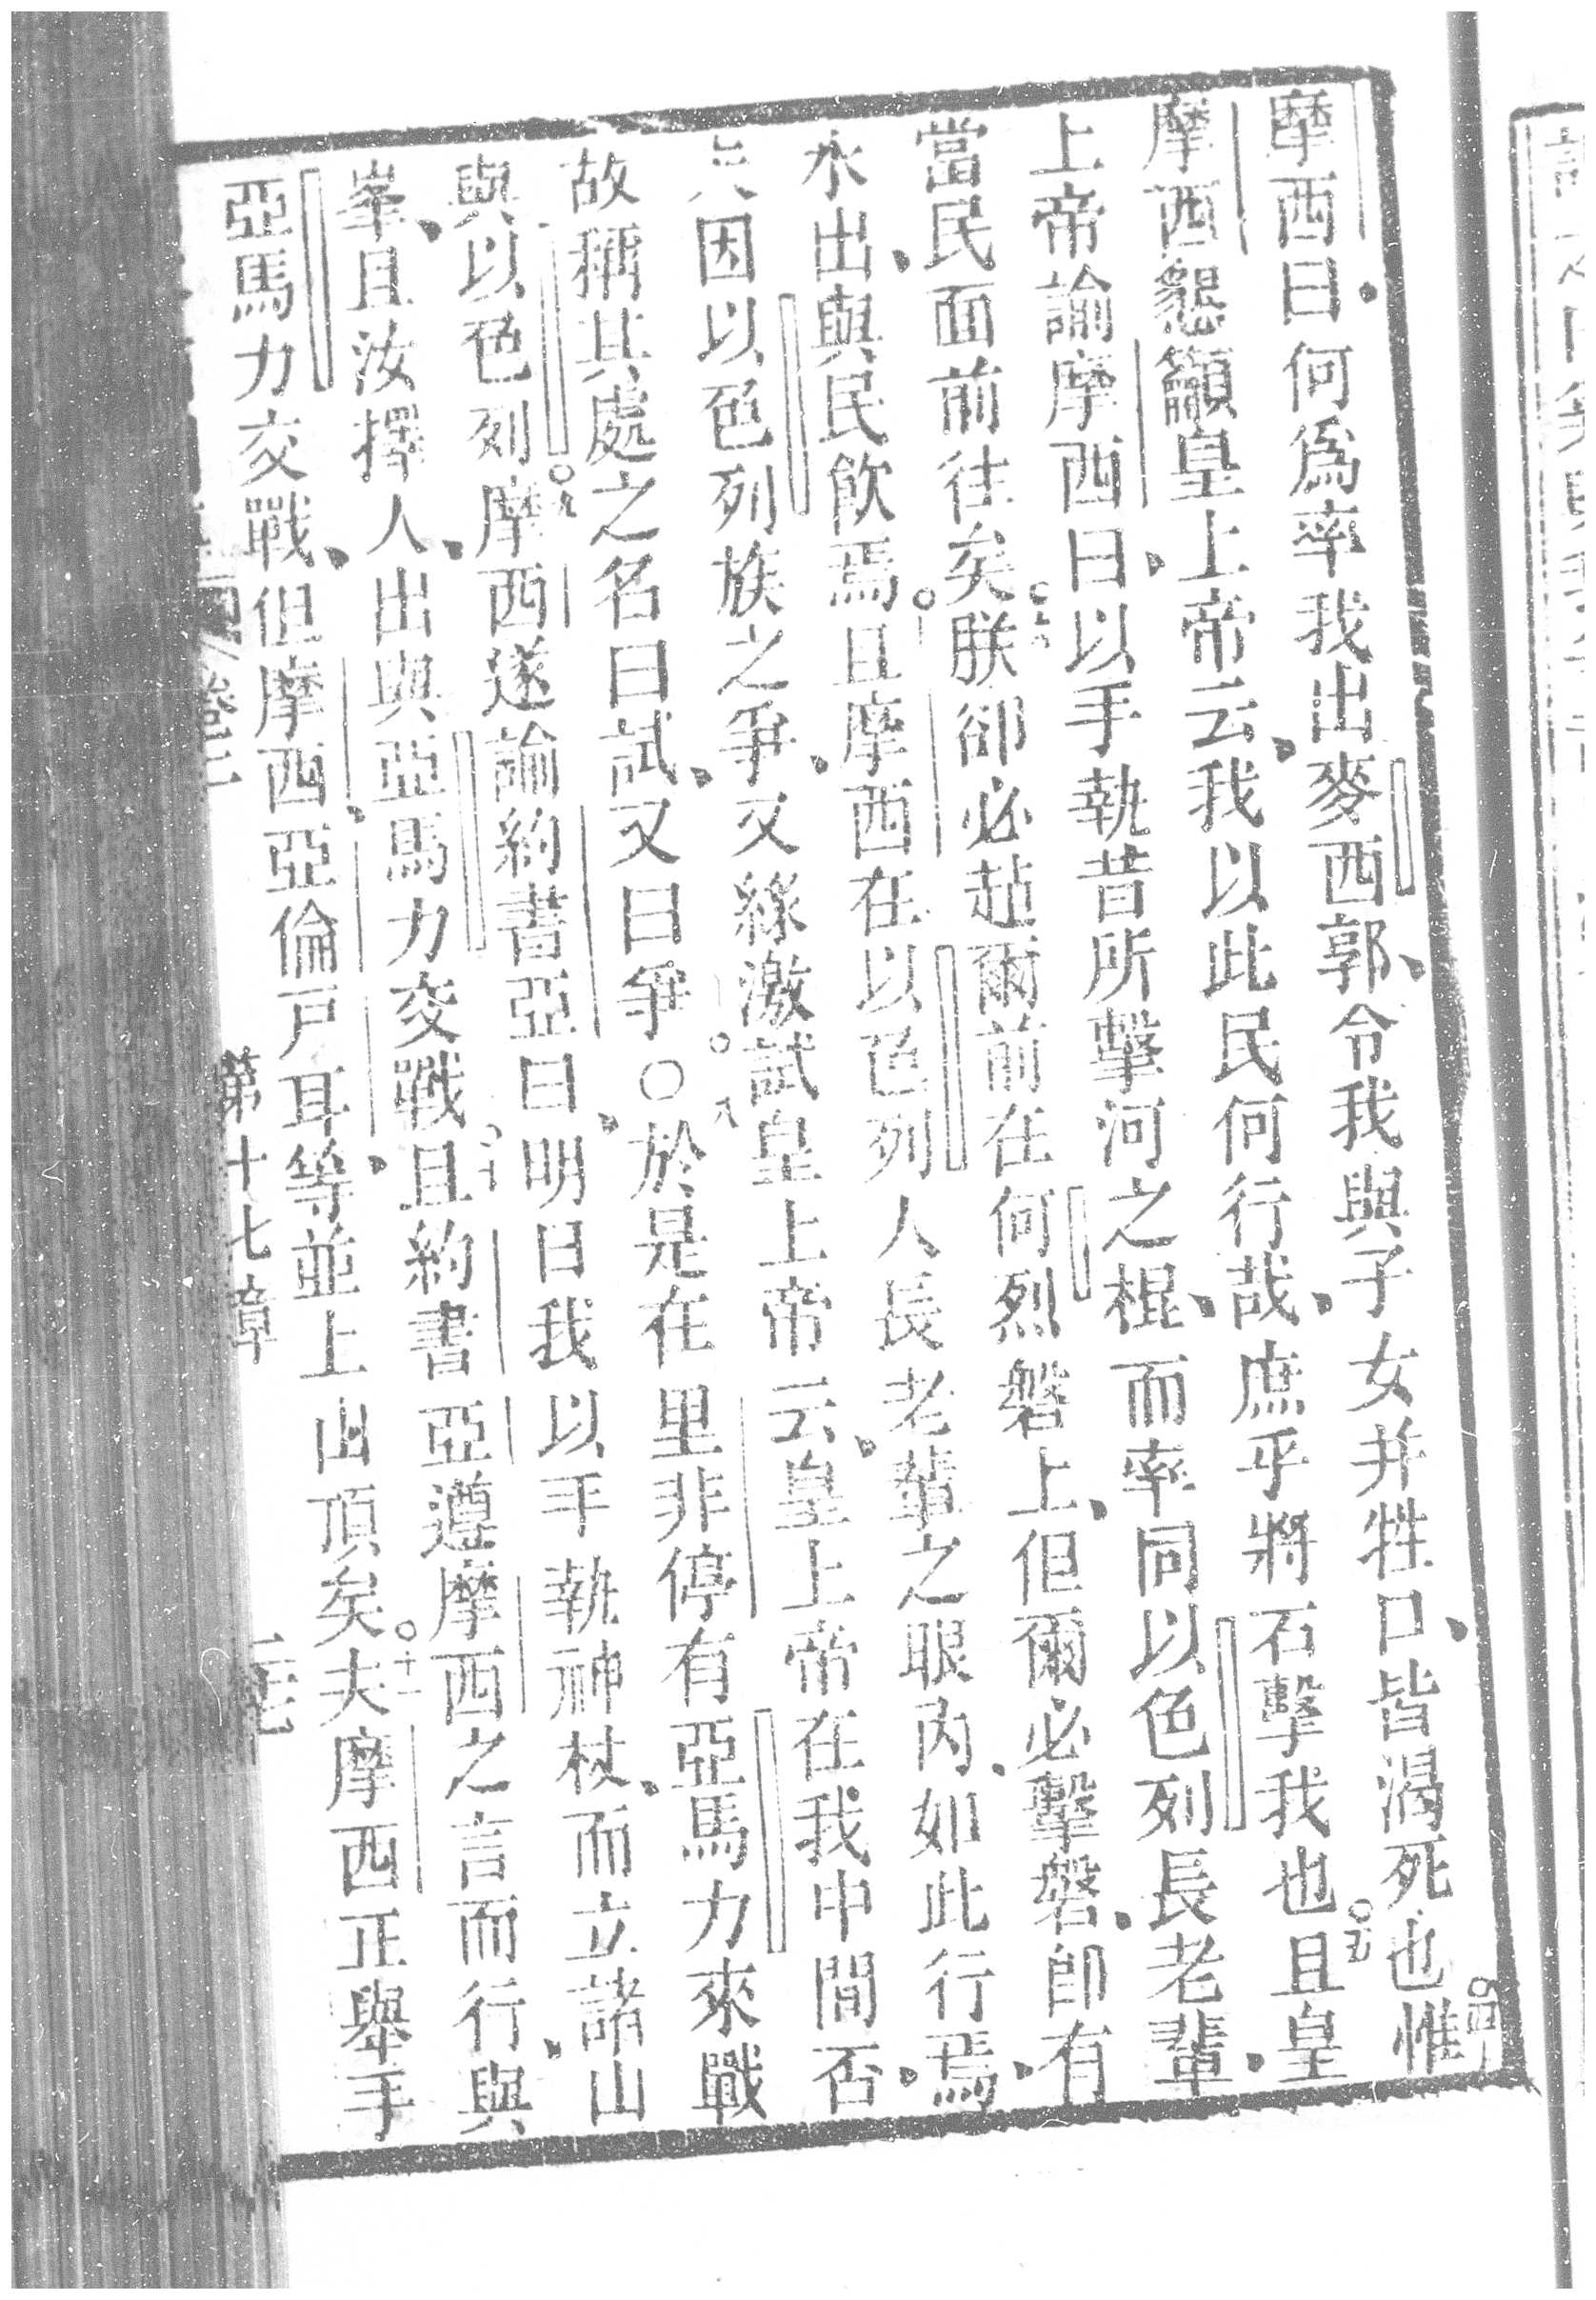 摩西曰、何爲率我出麥西郭、令我與子女并牲口、皆渴死也○四惟
摩西懇籲皇上帝云、我以此民何行哉、庶乎將石擊我也○五且皇
上帝諭摩西曰、以手執昔所擊河之棍、而率同以色列長老輩、
當民面前往矣○六朕卻必趈爾前在何烈磐上、但爾必擊磐、即有
水出、與民飲焉○且摩西在以色列人長老輩之眼內、如此行焉、
因以色列族之爭、又緣激試皇上帝云、皇上帝在我中間否、
故稱其處之名曰試、又曰爭○八○於是在里非停有亞馬力來戰
與以色列○九摩西遂諭約書亞曰、明日我以手執神杖、而立諸山
峯、且汝擇人、出與亞馬力交戰○十且約書亞遵摩西之言而行、與
亞馬力交戰、但摩西、亞倫戸耳等、並上山頂矣○十一夫摩西正舉手
第十七章